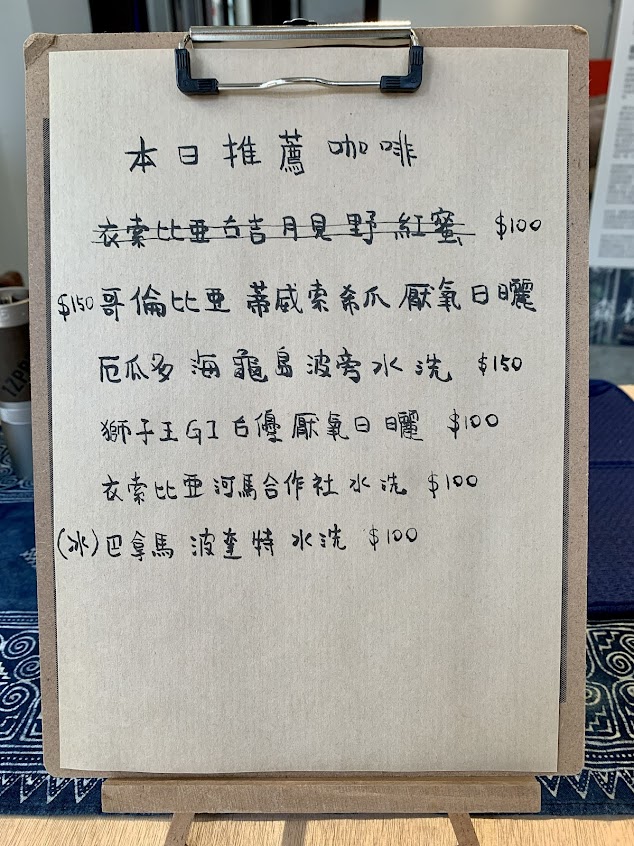 本日推薦咖啡
衣索比亞古吉月見野紅蜜 $100
$150 哥倫比亞 蒂威索希爪 厭氧日曬
厄瓜多 海龜島波旁水洗 $150
獅子王G1古優厭氧日曬 $100
衣索比亞河馬合作社水洗 $100
(冰)巴拿馬 波奎特 水洗 $100